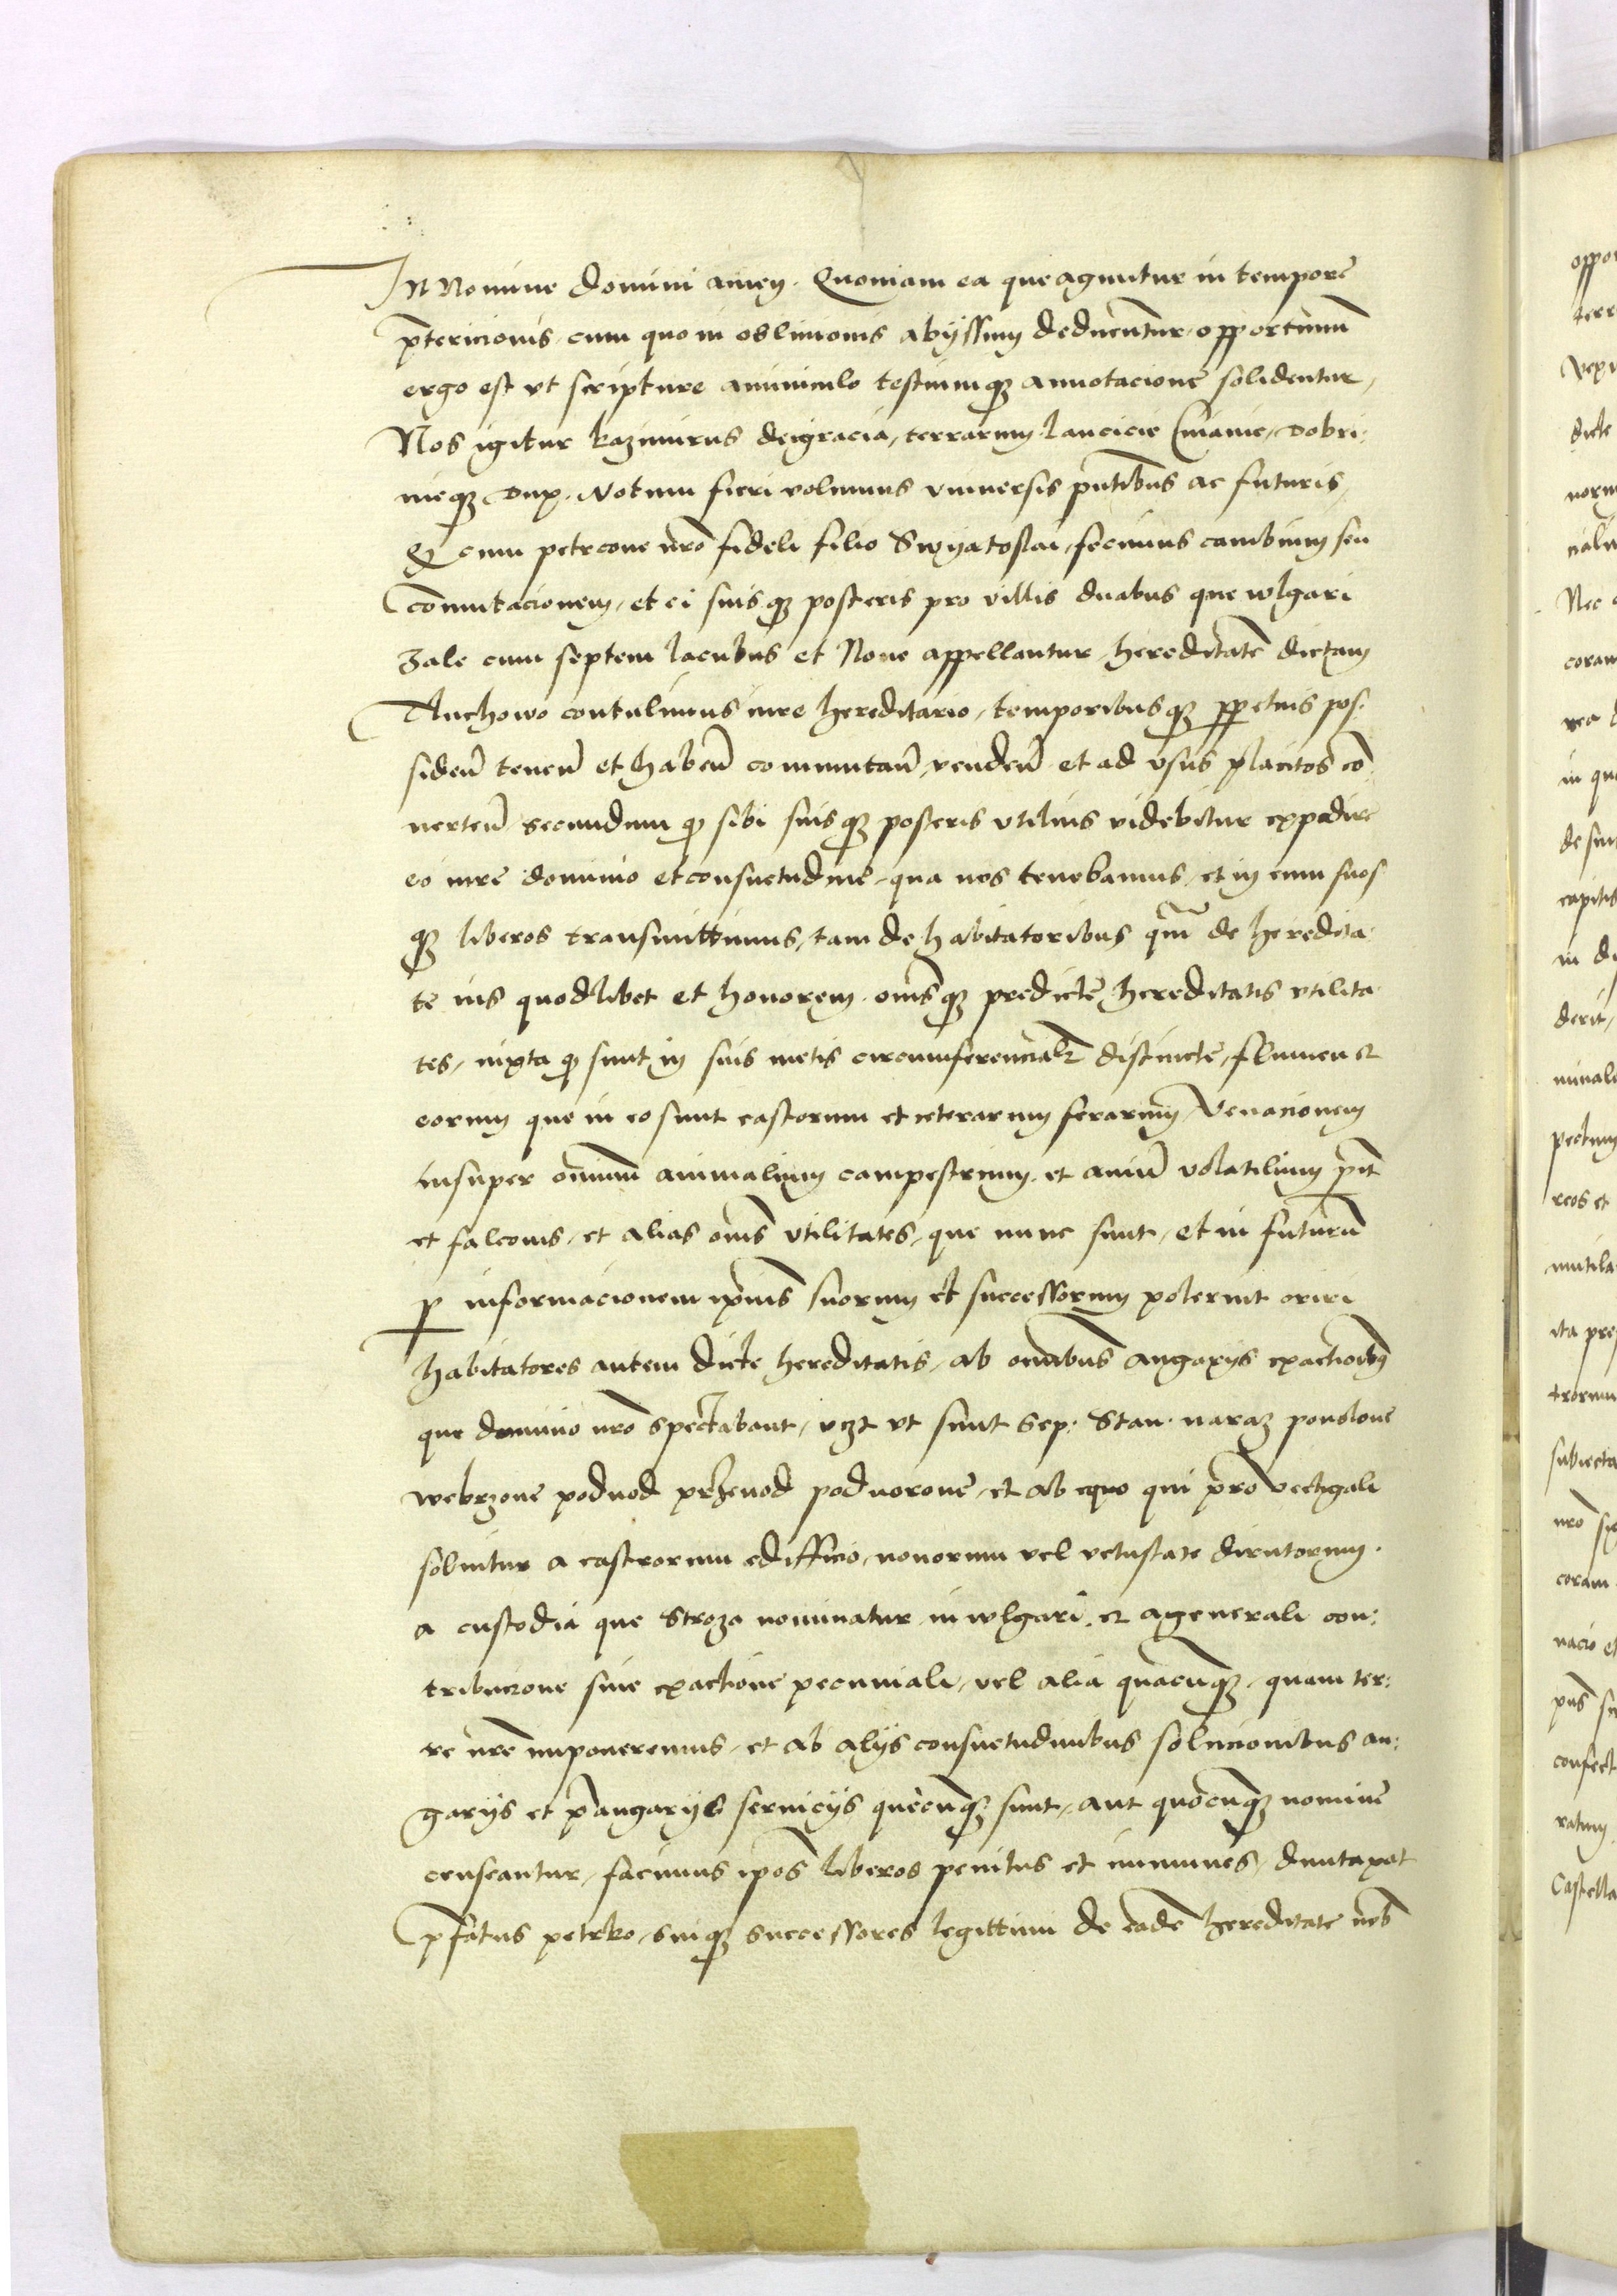 In Nomine domini amen. Quoniam ea que aguntur in tempore
p̄tericionis cum quo in obliuionis abijssum deducentur, opportunū
ergo est vt scripture aminiculo testiumqꝫ annotacione solidentur,
Nos igitur kazimirus deigracia, terrarum lancicie Cuiauie, dobri:
nieqꝫ dux. Notum fieri volumus vniuersis pn̄tibus ac futuris,
Qꝫ cum petrcone nr̄o fideli filio Swyatoslai, fecimus cambium seu
Com̄utacionem, et ei suisqꝫ posteris pro villis duabus que wlgari
Zale cum septem lacubus et Noue appellantur, hereditatē dictam
Anchowo contulimus iure hereditario, temporibusqꝫ ꝑpetuis pos:
siden̄ tenen̄ et haben̄ commutan̄, venden̄ et ad vsus placitos cō
uerten̄ secundum qꝫ sibi suisqꝫ posteris vtilius videbitur expedire
eo iure dominio et consuetudine, qua nos tenebamus, et in eum suos
qꝫ liberos transmittimus, tam de habitatoribus qm̄ de heredita:
te ius quodlibet et honorem, om̄sqꝫ predicte hereditatis vtilita
tes, iuxta qꝫ sunt in suis metis circumferencialr̄ distincte, flumen et
eorum que in eo sunt castorum et ceterarum ferarum, Venacionem
insuper omniū animalium campestrium et auiū volatilium
et falconis, et alias om̄s vtilitates, que nunc sunt, et in futurū
ꝑ informacionem ip̄ius suorum et successorum poterint oriri
habitatores autem dicte hereditatis, ab om̄ibus angarijs exactioībꝫ
que dominio nr̄o spectabant, vꝫt vt sunt Sep: Stan: naraz pouolowe
webrzone poduod przeuod poduorowe, et ab equo qui pro vectigali
soluitur a castrorum edifficio, nouorum vel vetustate dirutorum.
a custodia que Stroza nominatur in wlgari, et agenerali con:
tribucione siue exactione pecuniali, vel alia quacūqꝫ, quam ter:
re nr̄e imponeremus, et ab alijs consuetudinibus solucionibus an:
garijs et p̄angarijs seruicijs quecūqꝫ sunt, aut quocūqꝫ nomine
censeantur, facimus ip̄os liberos penitus et inmunes, duntaxat
p̄fatus petrko, suiqꝫ successores legittimi de eadē hereditate nob̄